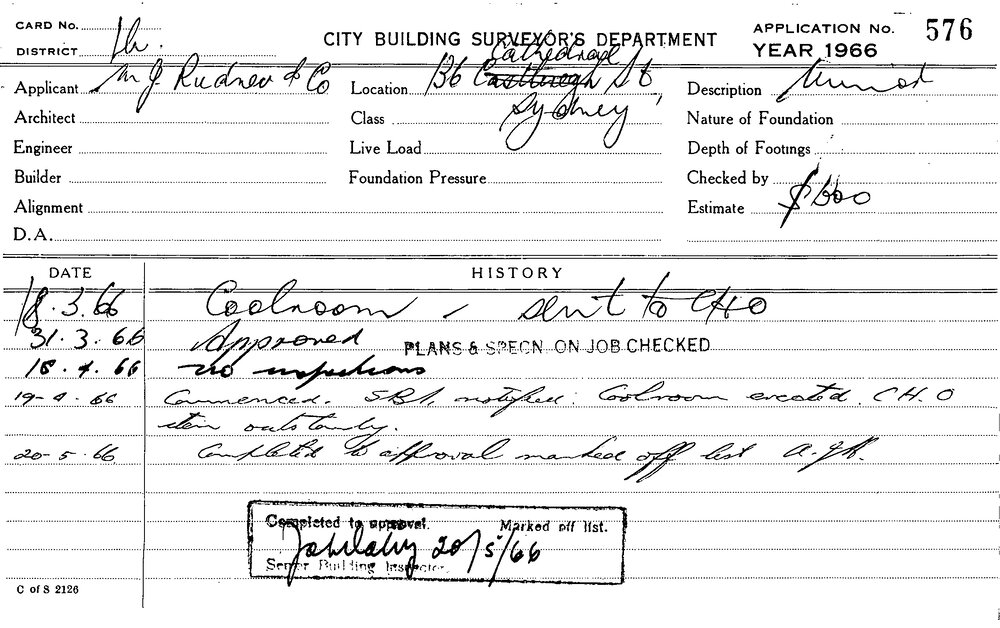 CARD No.
DISTRICT
CITY BUILDING SURVEYOR'S DEPARTMENT
APPLICATION No. 576
YEAR 1966
Applicant M J Rudnev & Co
Location 136 Cathedral St,
Sydney
Description Minor
Architect
Class
Nature of Foundation
Engineer
Live Load
Depth of Footings
Builder
Foundation Pressure
Checked by
Alignment
Estimate
D.A.
DATE HISTORY
18.3.66 Coolroom - sent to CHO
31.3.66 Approved PLANS & SPECN. ON JOB CHECKED
18.4.66 no inspections
19-4.66 Commenced. notified: Coolroom erected. C.H.O
item outstandg.
20-5.66 Completed to approval marked off list
Completed to approval. Marked off list.
20/5/66
Senior Building Inspector
C of S 2126